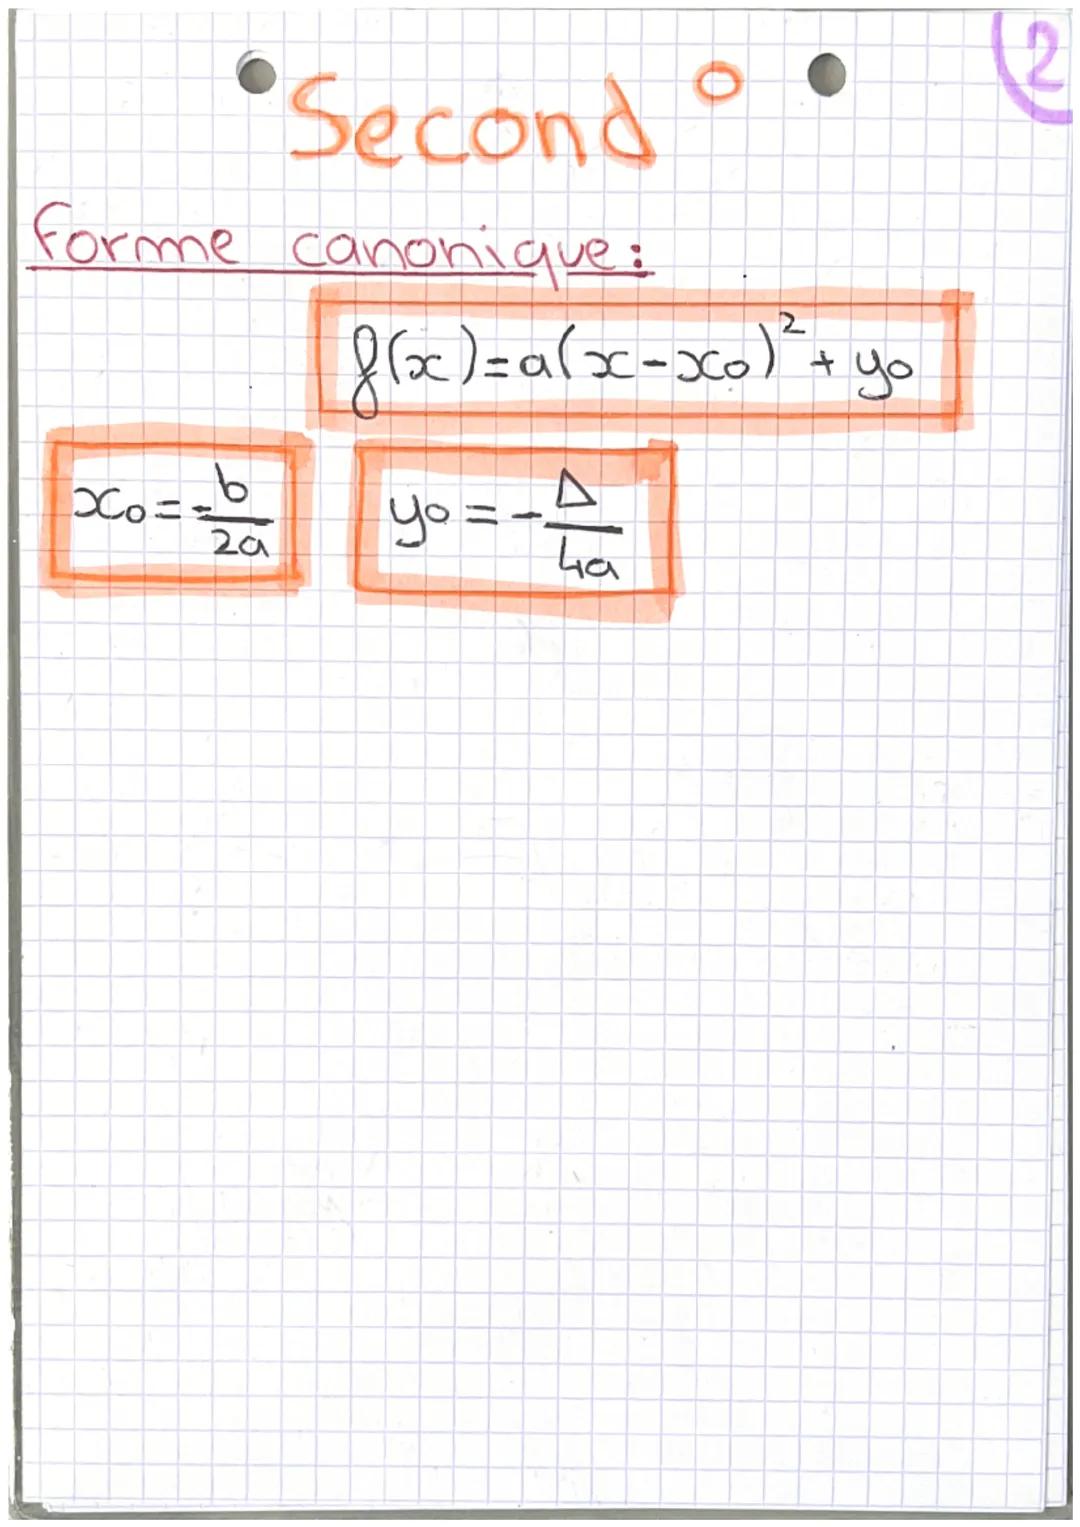 2
Second °
forme canonique :
f(x) = a(x - x₀)² + y₀
x₀ = -b/2a
y₀ = -Δ/4a